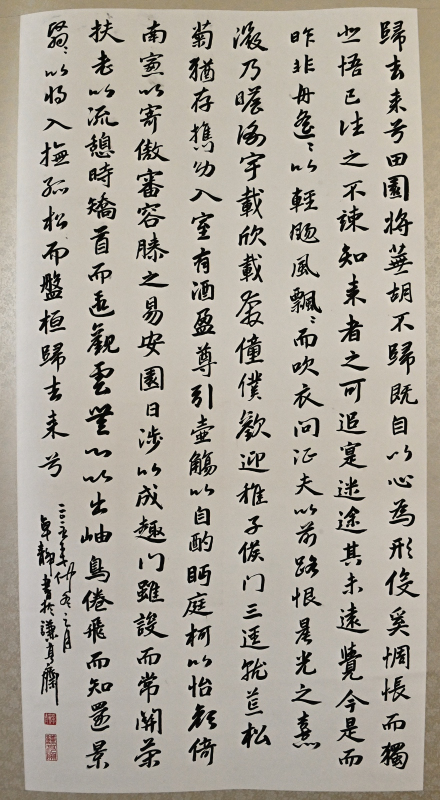 歸去来兮田園將蕪胡不歸既自以心為形伇奚惆悵而獨
悲悟已往之不諫知来者之可追寔迷途其未遠覺今是而
昨非舟遙〻以輕颺風飄〻而吹衣问征夫以前路恨晨光之熹
微乃瞻衡宇載欣載奔僮僕歡迎稚子候门三逕就荒松
菊猶存携幼入室有酒盈尊引壺觴以自酌眄庭柯以怡顏倚
南窓以寄傲審容膝之易安園日涉以成趣门雖設而常關策
扶老以流憩時矯首而遐觀雲無心以出岫鳥倦飛而知還景
翳〻以将入撫孤松而盤桓歸去来兮
仲冬之月
卓靜書於謙亨齋